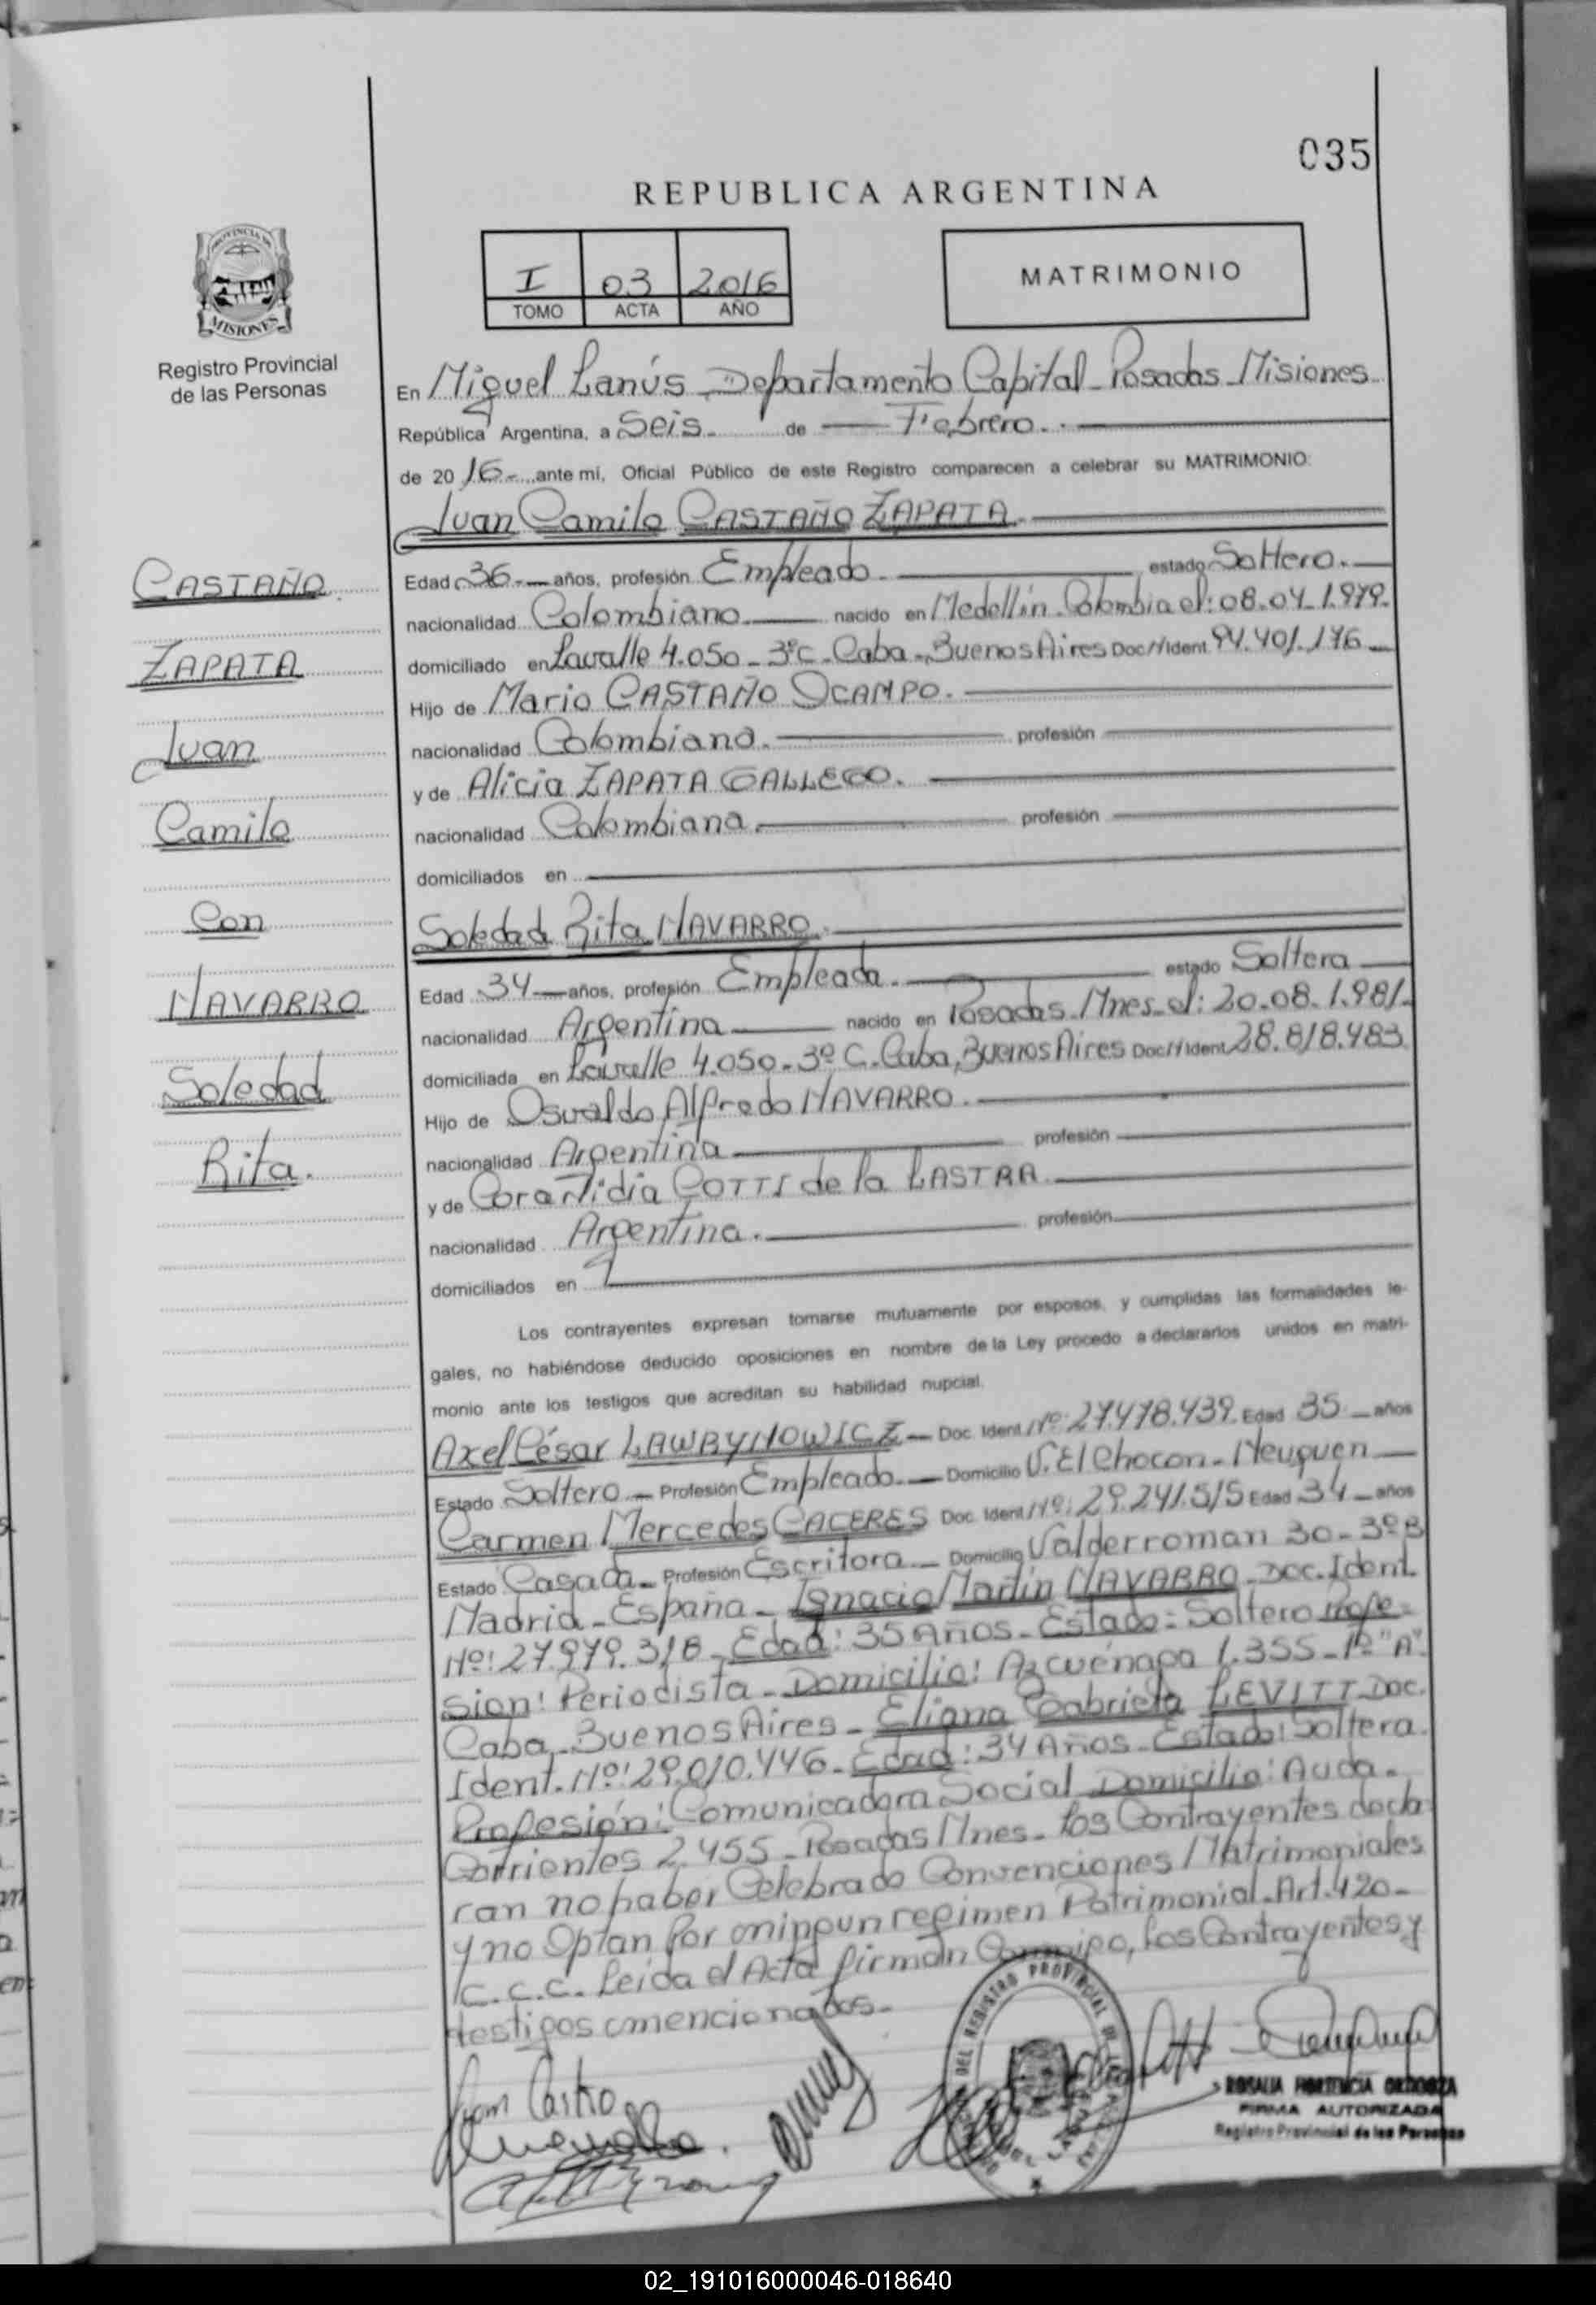 035
REPUBLICA ARGENTINA
PROVINCIA DE
MISIONES
Registro Provincial
de las Personas
I 03 2016
TOMO ACTA AÑO
MATRIMONIO
En Miguel Lanús Departamento Capital - Posadas - Misiones
República Argentina, a Seis. de Febrero.
de 20 16 ante mi, Oficial Público de este Registro comparecen a celebrar su MATRIMONIO:
Juan Camilo CASTAÑO ZAPATA
Edad 36 años, profesión Empleado estado Soltero.
nacionalidad Colombiano nacido en Medellín - Colombia el: 08.04.1.979.
domiciliado en Lavalle 4.050 - 3º C - Caba - Buenos Aires Doc. Ident. 94.401.176
Hijo de Mario CASTAÑO OCAMPO.
nacionalidad Colombiana. profesión
y de Alicia ZAPATA GALLEGO.
nacionalidad Colombiana. profesión
domiciliados en
CASTAÑO.
ZAPATA
Juan
Camilo
Con
NAVARRO
Soledad
Rita.
Soledad Rita NAVARRO.
Edad 34 años, profesión Empleada estado Soltera
nacionalidad Argentina nacido en Posadas - Mnes - el: 20.08.1.981.
domiciliada en Lavalle 4.050 - 3º C. Caba, Buenos Aires Doc. Ident 28.818.483
Hijo de Osvaldo Alfredo NAVARRO.
nacionalidad Argentina profesión
y de Cora Nidia COTTI de la LASTRA
nacionalidad Argentina. profesión
domiciliados en
Los contrayentes expresan tomarse mutuamente por esposos, y cumplidas las formalidades le-
gales, no habiéndose deducido oposiciones en nombre de la Ley procedo a declararlos unidos en matri-
monio ante los testigos que acreditan su habilidad nupcial.
Axel César LAWRYNOWICZ - Doc. Ident. Nº: 27.478.439 Edad 35 años
Estado Soltero - Profesión Empleado - Domicilio V. El Chocon - Neuquen
Carmen Mercedes CACERES Doc. Ident. Nº: 29.241.515 Edad 34 años
Estado Casada - Profesión Escritora - Domicilio Valderroman 30 - 3º B
Madrid - España - Ignacio Martín NAVARRO - Doc. Ident.
Nº: 27.979.318 - Edad: 35 Años - Estado: Soltero Profe-
sion: Periodista - Domicilio: Azcuénaga 1.355 - 1º "A"
Caba - Buenos Aires - Eliana Gabriela LEVITT - Doc.
Ident. Nº: 29.010.446 - Edad: 34 Años - Estado: Soltera.
Profesión: Comunicadora Social Domicilio: Avda.
Corrientes 2.455 - Posadas Mnes - Los Contrayentes decla-
ran no haber Celebrado Convenciones Matrimoniales
y no Optan por ningun regimen Patrimonial - Art. 420 -
C.C.C. Leida el Acta firman Conmigo, los Contrayentes y
testigos mencionados.
DEL REGISTRO PROVINCIAL DE LAS
Juan Castño
ROSALIA HORTENCIA
FIRMA AUTORIZADA
Registro Provincial de las Personas
02_191016000046-018640